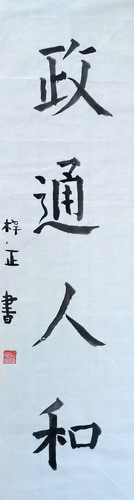 政通人和
梓·正 書